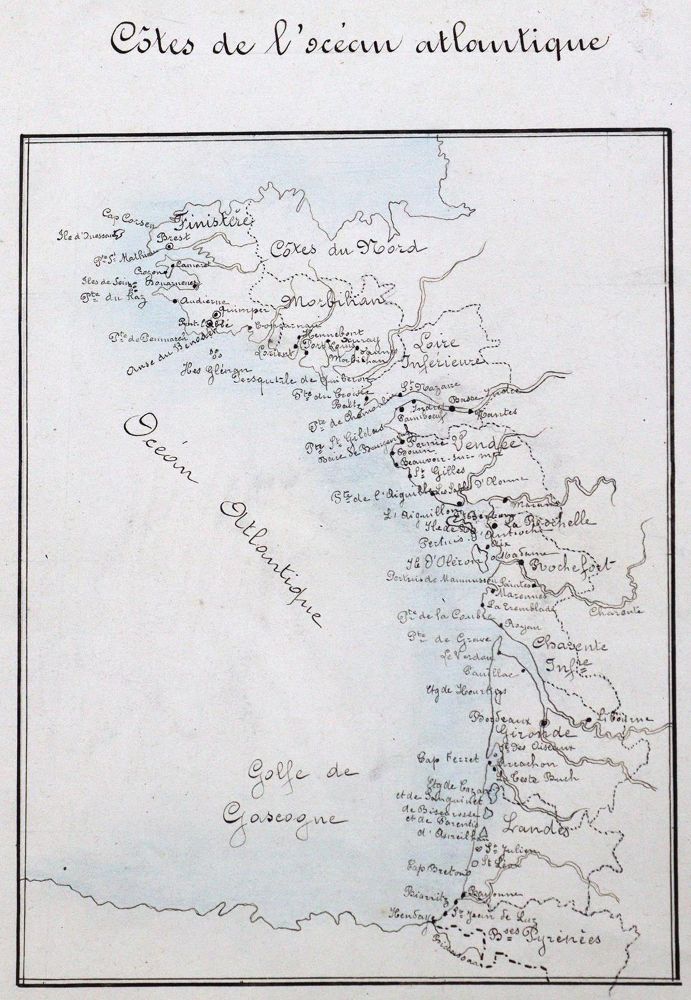 Côtes de l'océan atlantique
Cap Corsen
Finistère
Ile d'Ouessant
Brest
Pte St Mathieu
Côtes du Nord
Crozon
Camaret
Iles de Sein
Douarnenez
Pte du Raz
Audierne
Morbihan
Quimper
Pont l'Abbé
Concarneau
Hennebont
Pte de Penmarch
Anse du Benodet
Lorient
Port Louis
Auray
Vannes
Morbihan
Loire
Inférieure
Iles Glénan
Presqu'île de Quiberon
Pte du Croisic
St Nazaire
Batz
Basse Indre
Pte de Chemoulin
Indret
Nantes
Paimboeuf
Pte St Gildas
Pornic
Vendée
Baie de Bourgneuf
Bouin
Beauvoir-sur-mer
St Gilles
Les Sables d'Olonne
Pte de l'Aiguille
L'Aiguillon
Marans
Ile de Ré
La Rochelle
Pertuis d'Antioche
Aix
Ile d'Oléron
Rochefort
Pertuis de Maumusson
Saintes
Marennes
La Tremblade
Charente
Pte de la Coubre
Royan
Pte de Grave
Charente
Infre
Le Verdon
Pauillac
Etg de Hourtins
Bordeaux
Libourne
Gironde
Ile des Oiseaux
Cap Ferret
Arcachon
La Teste Buch
Etg de Cazau
et de Sanguinet
de Biscarosse
et de Parentis
d'Aureilhan
Landes
St Julien
St Léon
Cap Breton
Biarritz
Bayonne
Hendaye
St Jean de Luz
Bses Pyrénées
Bidassoa
Océan Atlantique
Golfe de
Gascogne